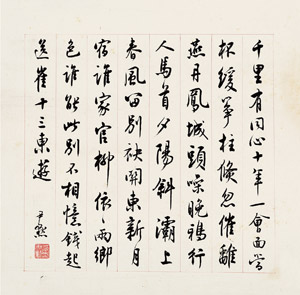 千里有同心十年一會面當
杯緩筝柱倏忽催離
燕丹鳳城頭噪晚鴉行
人馬首夕陽斜灞上
春風留別袂關東新月
宿誰家官柳依〻兩鄉
色誰能此別不相憶錢起
送崔十三東遊
尹默